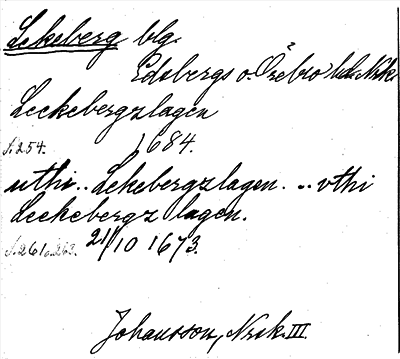 Lekeberg blg.
Edsbergs o. Örebro hd. Nrk
Leckebergzlagen
s. 254. 1684.
uthi.. Lekebergzlagen... vthi
Leekebergz lagen.
s. 261 o. 262. 21/10 1673.
Johansson, Nrsk. III.